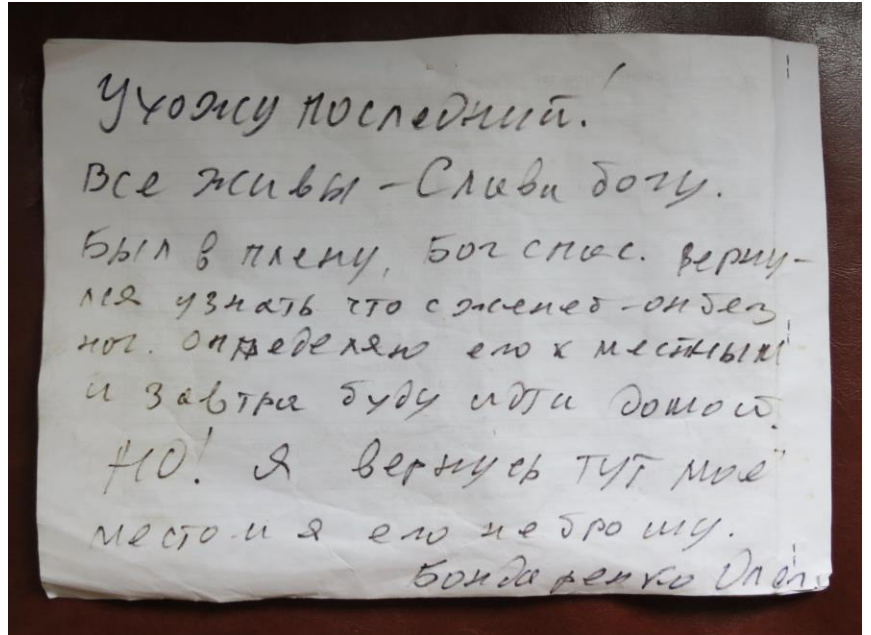 Ухожу последний!
Все живы - Слава богу.
Был в плену, Бог спас. Верну-
лся узнать что с - он без
ног. Определяю его к местным
и завтра буду идти домой.
НО! Я вернусь тут моё
место и я его не брошу.
Бондаренко Олег